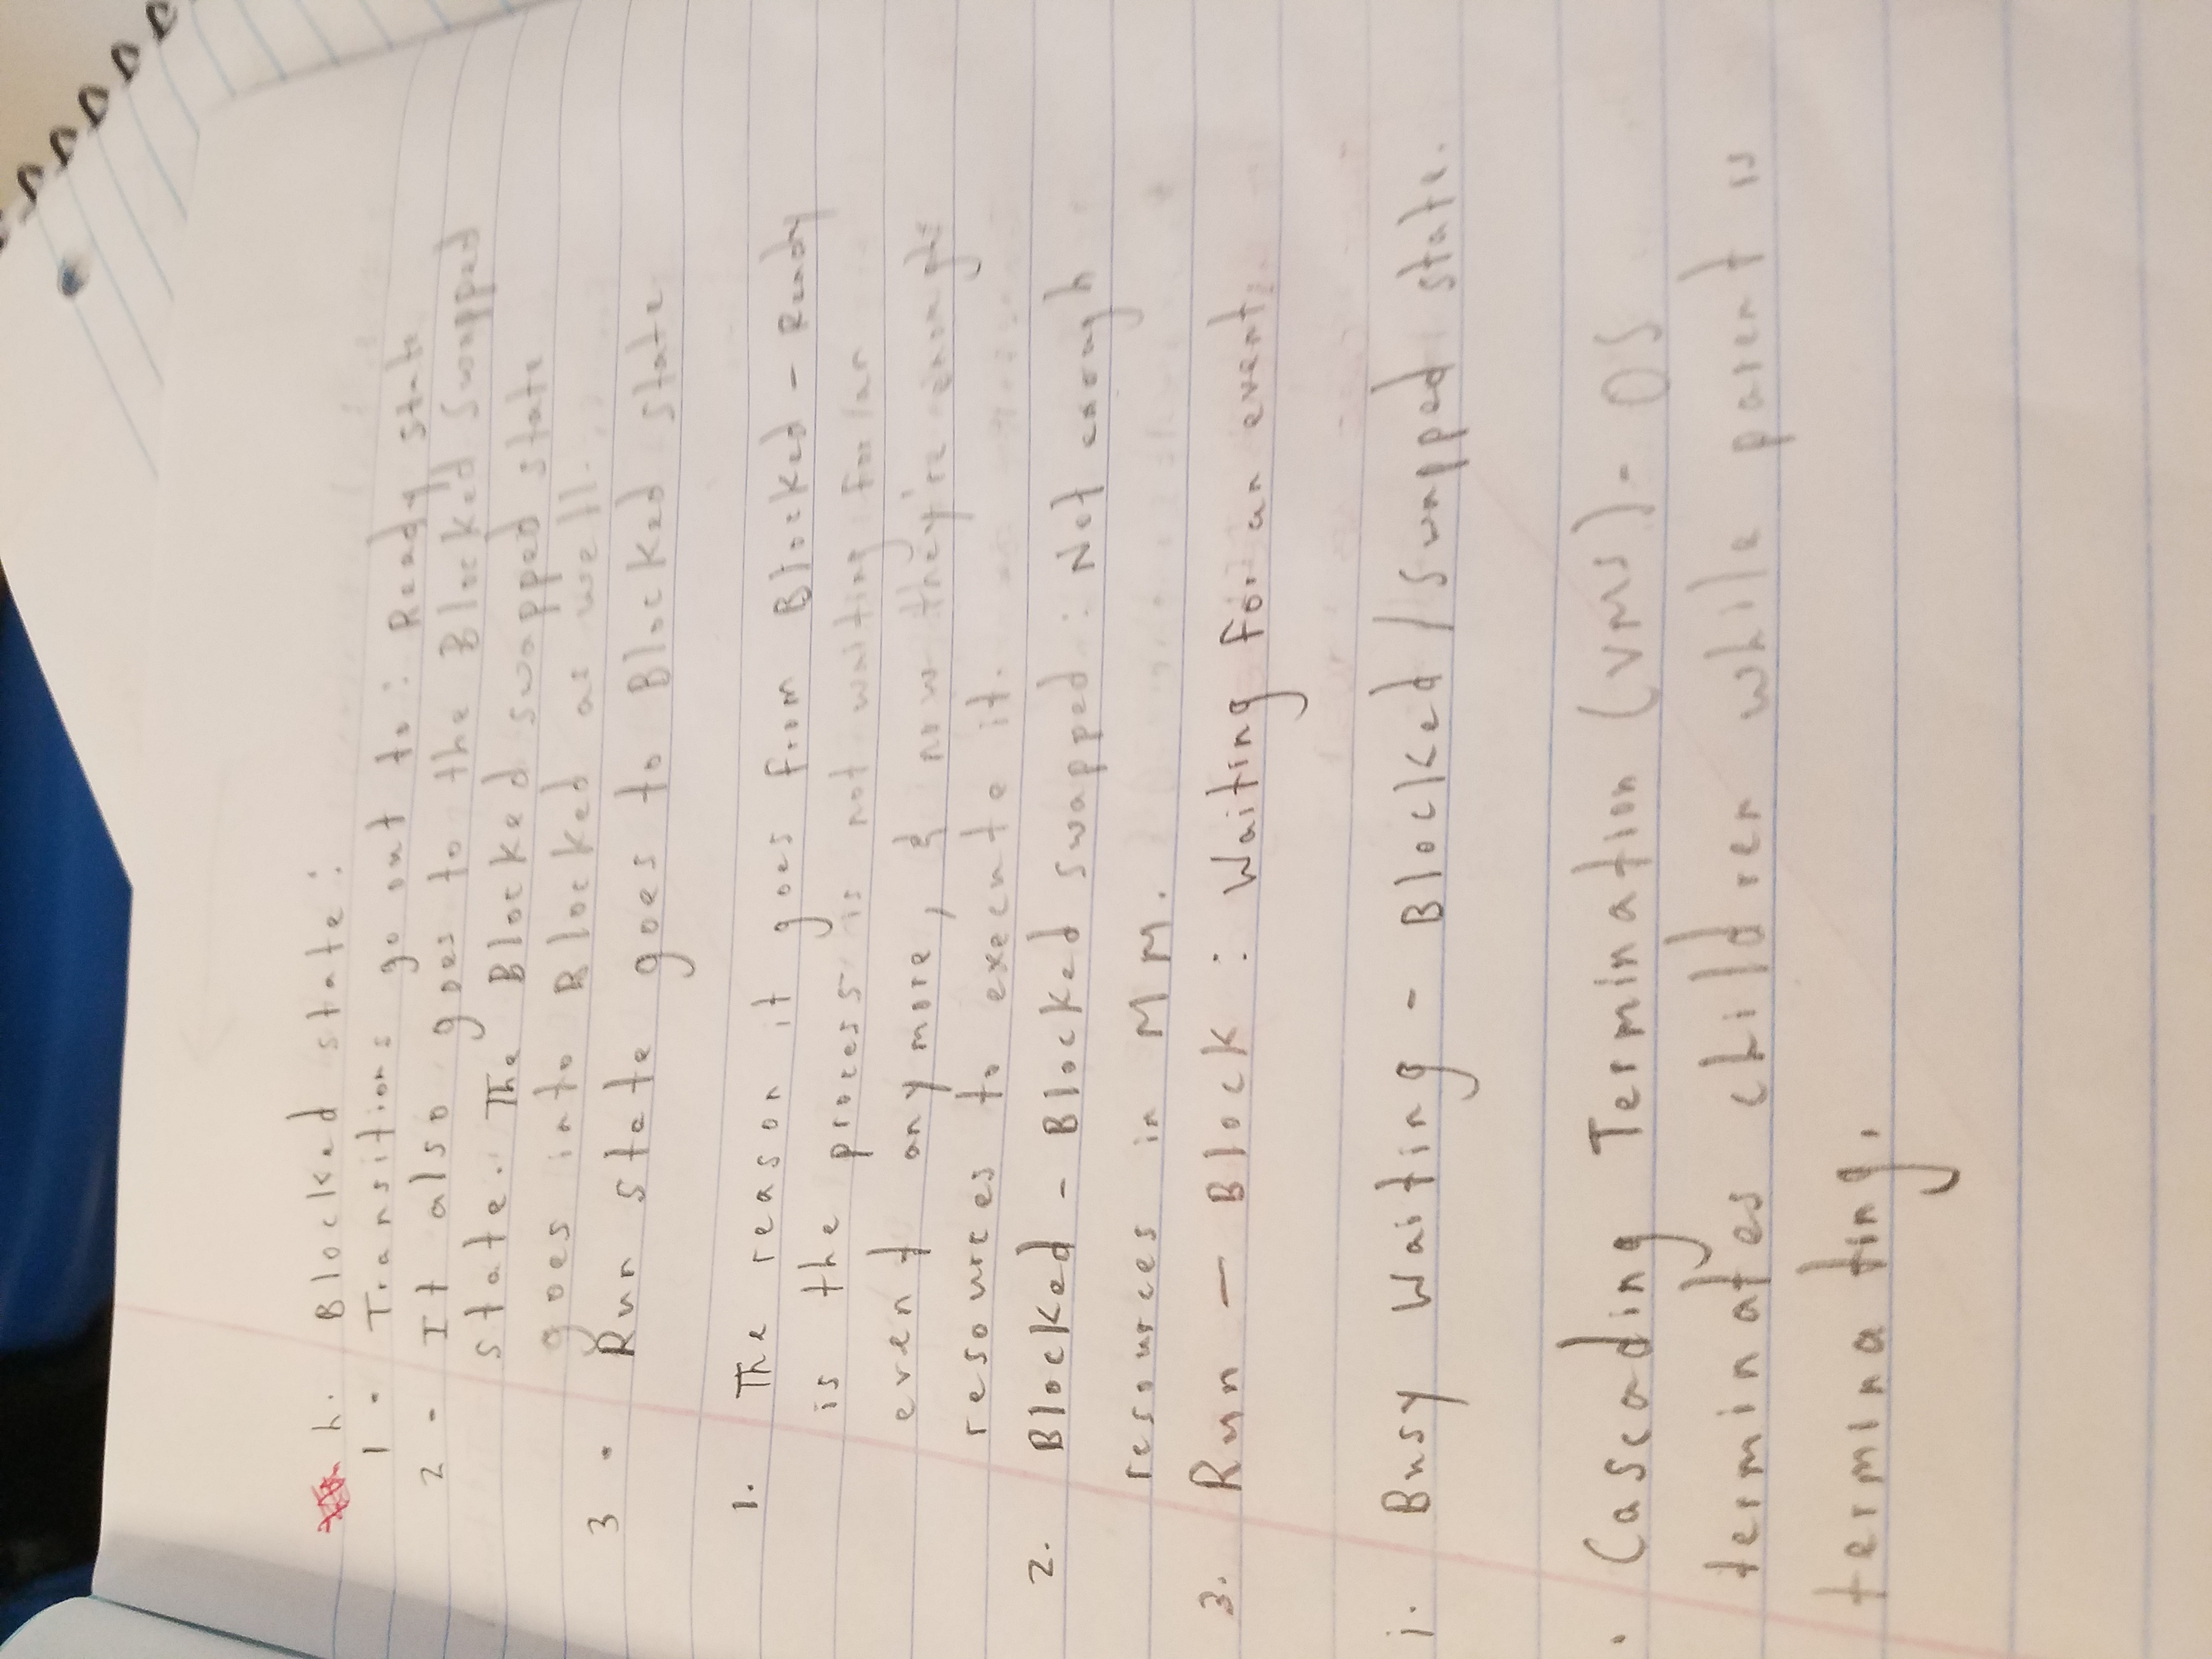 h. Blocked state:
1 - Transitions go out to: Ready state
2 - It also goes to the Blocked Swapped
state. The Blocked swapped state
goes into Blocked as well.
3 - Run state goes to Blocked state
1. The reason it goes from Blocked - Ready
is the process is not waiting for an
event anymore, & now they're enough
resources to execute it.
2. Blocked - Blocked swapped : Not enough
resources in MM.
3. Run - Block : Waiting for an event.
i. Busy Waiting - Blocked / Swapped state.
. Cascading Termination (VMS) - OS
terminates children while parent is
terminating.